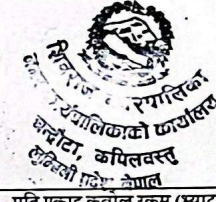 शिवराज नगरपालिका
नगर कार्यपालिकाको कार्यालय
चन्द्रौटा, कपिलवस्तु
लुम्बिनी प्रदेश नेपाल
प्रति एकाइ कबोल रकम